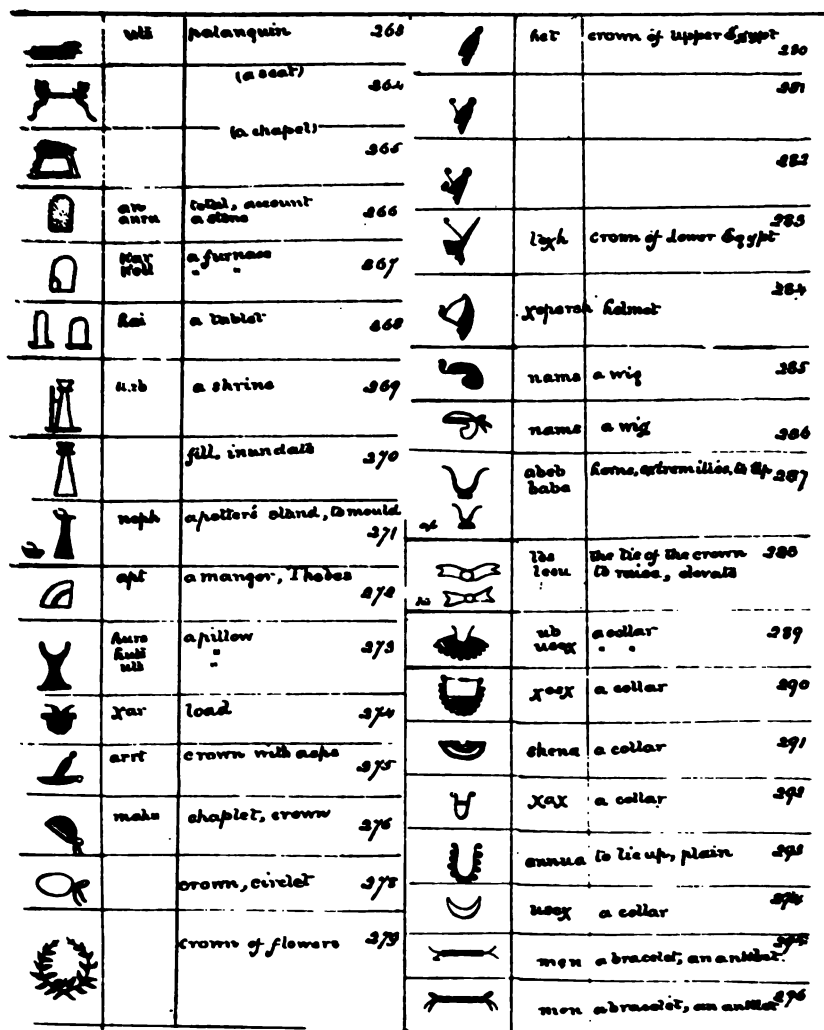 palanquin 263
(a seat)
264
(a chapel)
265
an total, account
anru a stone 266
Kar a furnace
" " 267
hai a tablet 268
a shrine 269
fill, inundate 270
noph a potter's stand, to mould
271
apt a manger, Thebes
272
a pillow
" 273
"
χar load 274
arrt crown with asps
275
maha chaplet, crown
276
crown, circlet 278
crown of flowers 279
het crown of Upper Egypt
280
281
282
283
crown of Lower Egypt
284
χepersh helmet
285
nams a wig
nams a wig 286
abeb horns, extremities, to 287
baba
the tie of the crown 288
to raise, elevate
ub a collar 289
useχ " "
a collar 290
shena a collar 291
χaχ a collar 292
annua to tie up, plain 293
useχ a collar 294
295
men a bracelet, an anklet
296
men a bracelet, an anklet